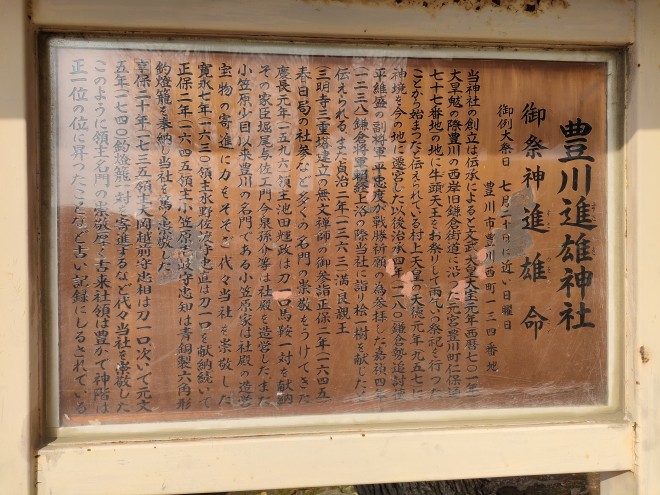 豊川進雄神社
御祭神 進雄命
豊川市豊川西町一三四番地
御例大祭日 七月二十日に近い日曜日
当神社の創立は伝承によると文武天皇大宝元年西暦七〇一年
大旱魃の際豊川の西岸旧鎌倉街道に沿った元宮豊川町仁保通
七十七番地の地に牛頭天王をお祭りして雨乞い祭祀を行った
ことから始まったと伝えられている村上天皇の天徳元年九五七に
神境を今の地に遷宮した以後治承四年一一八〇鎌倉勢追討
平維盛の副将軍平忠度が戦勝祈願の為参拝した嘉禎四年
一二三八鎌倉将軍頼経上洛の際当社に詣り桧一樹を献じたと
伝えられるまた貞治二年一三六三満良親王
(三明寺三重塔建立の無文禅師の御参詣正保二年一六四五
春日局の社参など多くの名門の崇敬をうけてきた
慶長元年一五九六領主池田輝政は刀一口馬鞍一対を献納
その家臣堀尾与佐エ門今泉孫介等は社殿を造営したまた
小笠原少目以来豊川の名門である小笠原家は社殿の造営
宝物の寄進に力をそそぎ代々当社を崇敬した
寛永七年一六三〇領主水野佐渡守忠直は刀一口を献納続いて
正保二年一六四五領主小笠原壱岐守忠知は青銅製六角形
釣燈籠を奉納し当社を篤く崇敬した
享保二十年一七三五領主大岡越前守忠相は刀一口次いで元文
五年一七四〇釣燈籠一対を寄進するなど代々当社を崇敬した
このように領主名門の崇敬厚く古来社領は豊かで神階は
正一位の位に昇ったことなど古い記録にしるされている